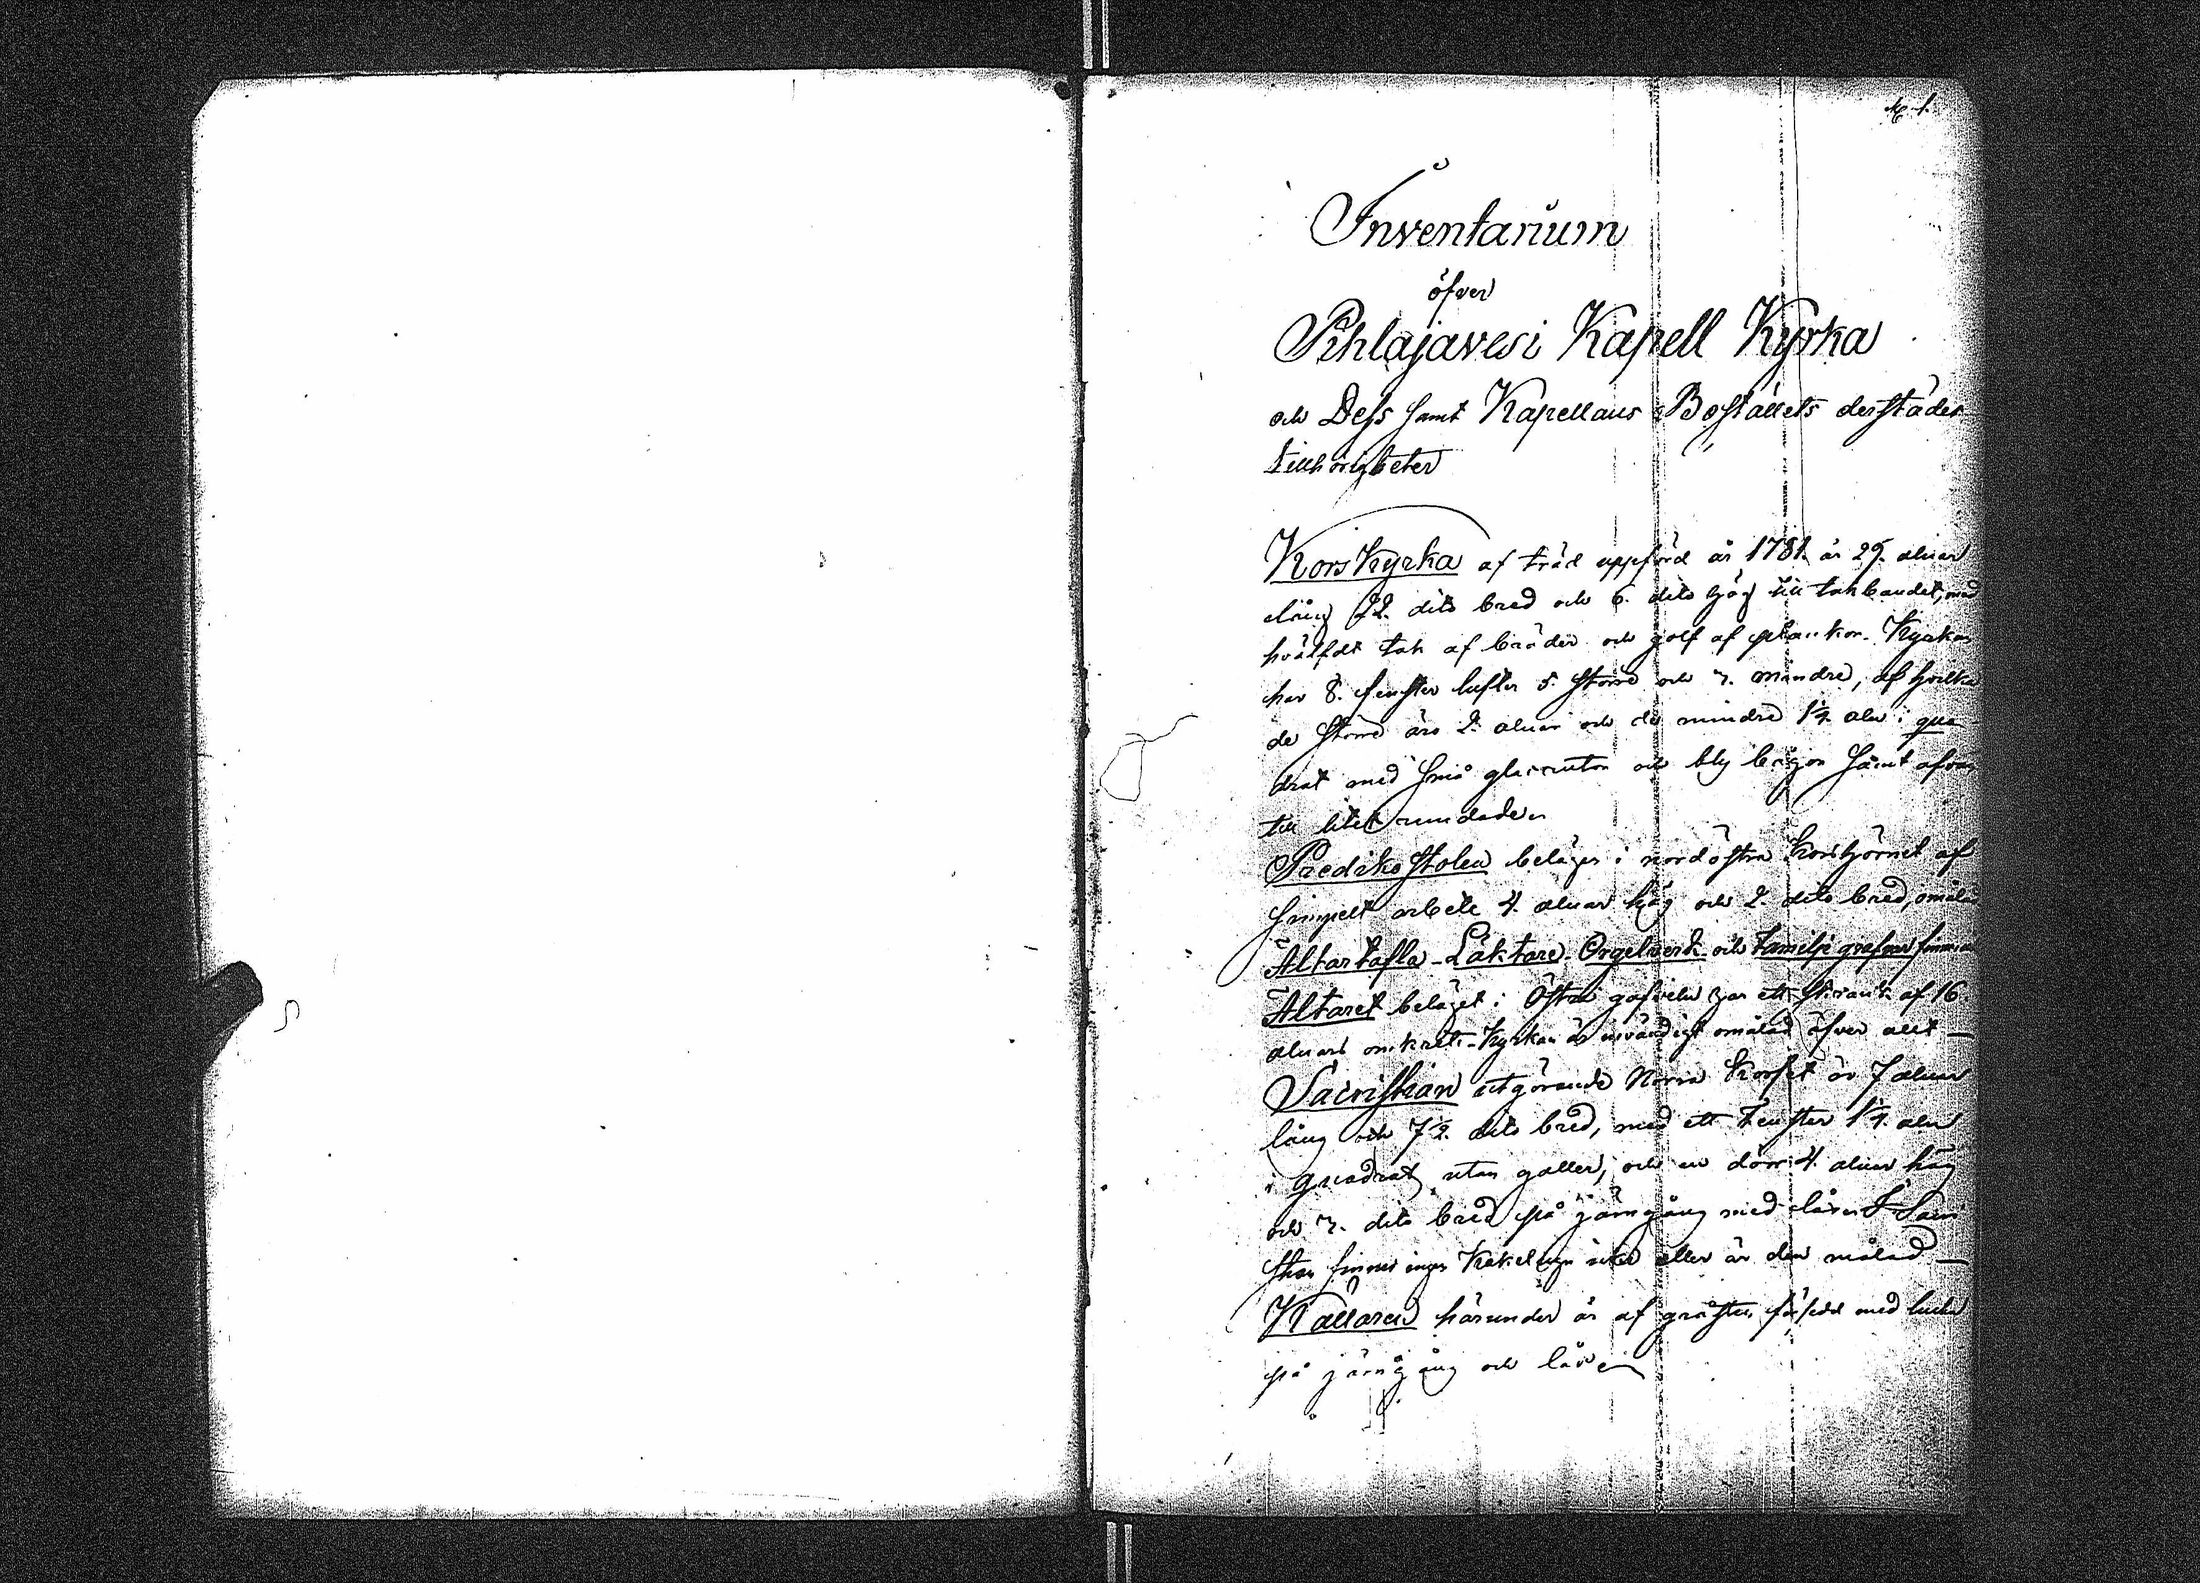 Inventarium
öfver
Pihlajavesi Kapell Kyrka
och Dess samt Kapellans Boställets derstädes
tillhörigheter
Korskyrka af träd uppförd år 1781. är 29. alnar
lång 22. dito bred och 6. dito hög till takbandet, med
hvälfdt tak af bräder och golf af plankor. Kyrkan
har 8. fenster lufter 5. större och 3. mindre, af hvilka
de större äro 2. alnar och de mindre 1¼. aln i qua
drat med små glasrutor och bly bågor samt ofvan
till litet rundade.
Predikostolen belägen i nordöstra korshörnet af
simpelt arbete 4. alnar hög och 2. dito bred, omålad
Altartafla - Läktare - Orgelverk och Familje grafvar finnas
Altaret beläget i Östra gafveln har ett skrank af 16
alnars omkrets. Kyrkan är invändigt omålad öfver allt —
Sacristian utgörande Norra Korset är 7 alnar
lång och 7½. dito bred, med ett Fenster 1¼. aln
i quadrat, utan galler, och en dörr 4. alnar hög
och 3. dito bred på järngång med lås. I Sacri
stian finnes ingen Kakelugn icke eller är den målad —
Källaren härunder är af gråsten försedd med lucka
på järngång och lås